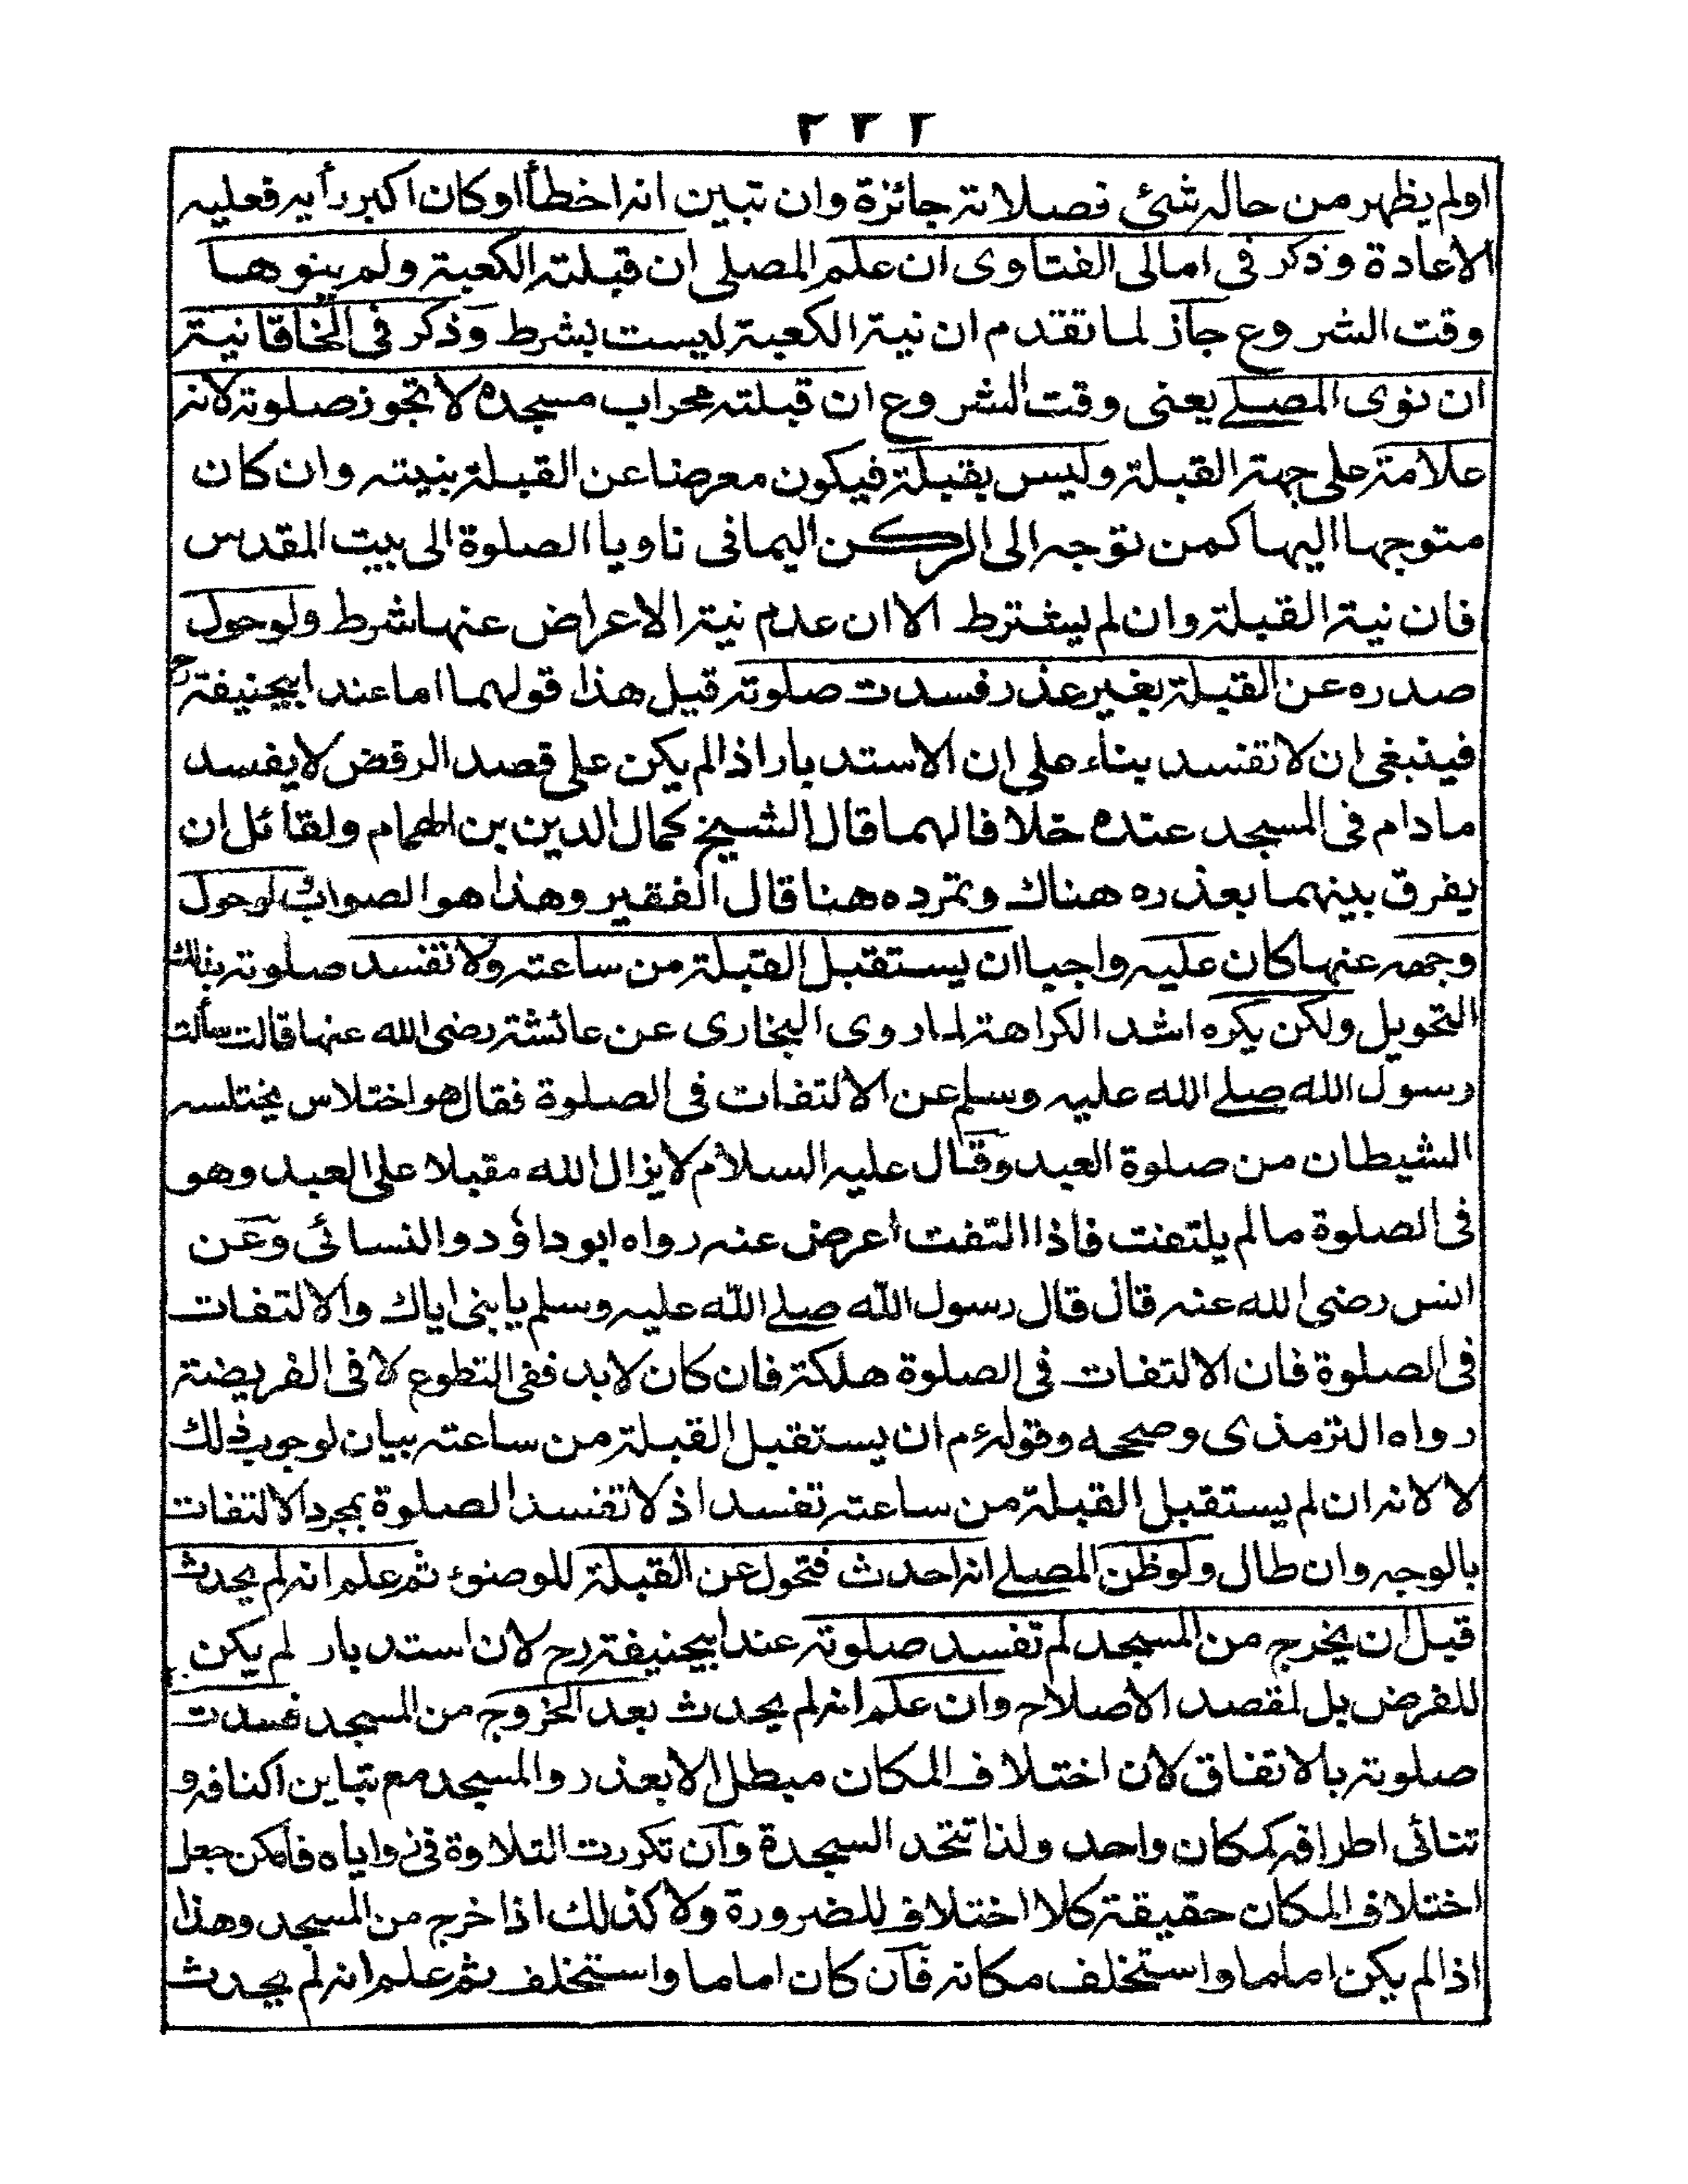 ٢٢٢
اولم يظهر من حاله شئ فصلاته جائزة وان تبين انه اخطأ اوكان اكبر رأيه فعليه
الاعادة وذكر فى امالى الفتاوى ان علم المصلى ان قبلته الكعبة ولم ينوها
وقت الشروع جاز لما تقدم ان نية الكعبة ليست بشرط وذكر فى الخاقانية
ان نوى المصلے يعنى وقت الشروع ان قبلته محراب مسجده لا تجوز صلوته لانه
علامة على جهة القبلة وليس بقبلة فيكون معرضا عن القبلة بنيته وان كان
متوجها اليها كمن توجه الى الركن اليمانى ناويا الصلوة الى بيت المقدس
فان نية القبلة وان لم يشترط الا ان عدم نية الاعراض عنها شرط ولوحول
صدره عن القبلة بغير عذر فسدت صلوته قيل هذا قولهما اما عند ابيحنيفة رح
فينبغى ان لا تفسد بناء على ان الاستدبار اذا لم يكن على قصد الرفض لا يفسد
مادام فى المسجد عنده خلافا لهما قال الشيخ كمال الدين بن الهمام ولقائل ان
يفرق بينهما بعذره هناك وتمرده هنا قال الفقير وهذا هو الصواب لوحول
وجهه عنها كان عليه واجبا ان يستقبل القبلة من ساعته ولا تفسد صلوته بذلك
التحويل ولكن يكره اشد الكراهة لما روى البخارى عن عائشة رضى الله عنها قالت سألت
رسول الله صلے الله عليه وسلم عن الالتفات فى الصلوة فقال هو اختلاس يختلسه
الشيطان من صلوة العبد وقال عليه السلام لا يزال الله مقبلا على العبد وهو
فى الصلوة ما لم يلتفت فاذا التفت اعرض عنه رواه ابو داؤد والنسائى وعن
انس رضى الله عنه قال قال رسول الله صلے الله عليه وسلم يا بنى اياك والالتفات
فى الصلوة فان الالتفات فى الصلوة هلكة فان كان لابد ففى التطوع لا فى الفريضة
رواه الترمذى وصححه وقوله م ان يستقبل القبلة من ساعته بيان لوجوب ذلك
لا لانه ان لم يستقبل القبلة من ساعته تفسد اذ لا تفسد الصلوة بمجرد الالتفات
بالوجه وان طال ولوظن المصلے انه احدث فتحول عن القبلة للوضوء ثم علم انه لم يحدث
قبل ان يخرج من المسجد لم تفسد صلوته عند ابيحنيفة رح لان استدبار لم يكن
للفرض بل لقصد الاصلاح وان علم انه لم يحدث بعد الخروج من المسجد فسدت
صلوته بالاتفاق لان اختلاف المكان مبطل الا بعذر والمسجد مع تباين اكنافه و
تنائى اطرافه كمكان واحد ولذا تتحد السجدة وان تكررت التلاوة فى زواياه فامكن جعل
اختلاف المكان حقيقة كلا اختلاف للضرورة ولا كذلك اذا خرج من المسجد وهذا
اذا لم يكن اماما واستخلف مكانه فان كان اماما واستخلف ثم علم انه لم يحدث